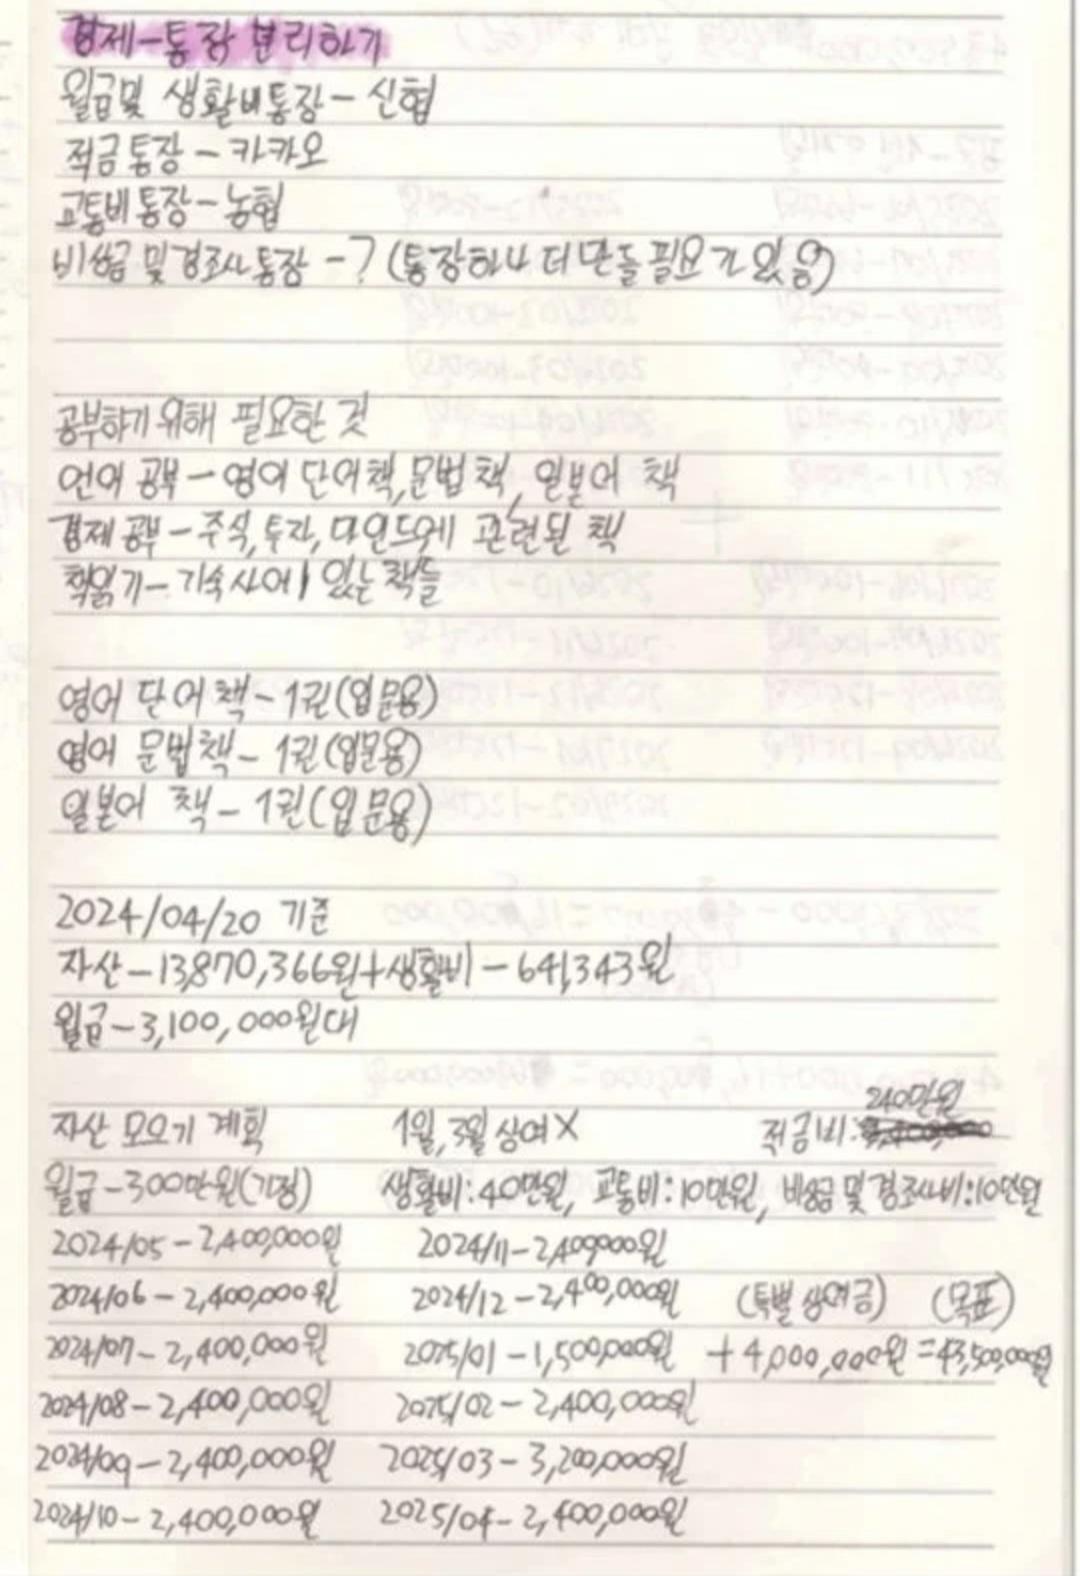 경제-통장 분리하기
월급및 생활비통장 - 신협
적금통장 - 카카오
교통비통장 - 농협
비상금 및 경조사 통장 - ? (통장하나 더 만들 필요가 있음)
공부하기 위해 필요한 것
언어 공부 - 영어 단어책, 문법책, 일본어 책
경제 공부 - 주식, 투자, 마인드에 관련된 책
책읽기 - 기숙사에 있는 책들
영어 단어책 - 1권(입문용)
영어 문법책 - 1권(입문용)
일본어 책 - 1권(입문용)
2024/04/20 기준
자산 - 13,870,366원 + 생활비 - 641,343원
월급 - 3,100,000원대
자산 모으기 계획 1월, 3월 상여X 적금비: 240만원
월급 - 300만원(가정) 생활비: 40만원, 교통비: 10만원, 비상금 및 경조사비: 10만원
2024/05 - 2,400,000원 2024/11 - 2,400,000원
2024/06 - 2,400,000원 2024/12 - 2,400,000원 (특별 상여금) (목표)
2024/07 - 2,400,000원 2025/01 - 1,500,000원 + 4,000,000원 = 43,500,000원
2024/08 - 2,400,000원 2025/02 - 2,400,000원
2024/09 - 2,400,000원 2025/03 - 3,200,000원
2024/10 - 2,400,000원 2025/04 - 2,400,000원